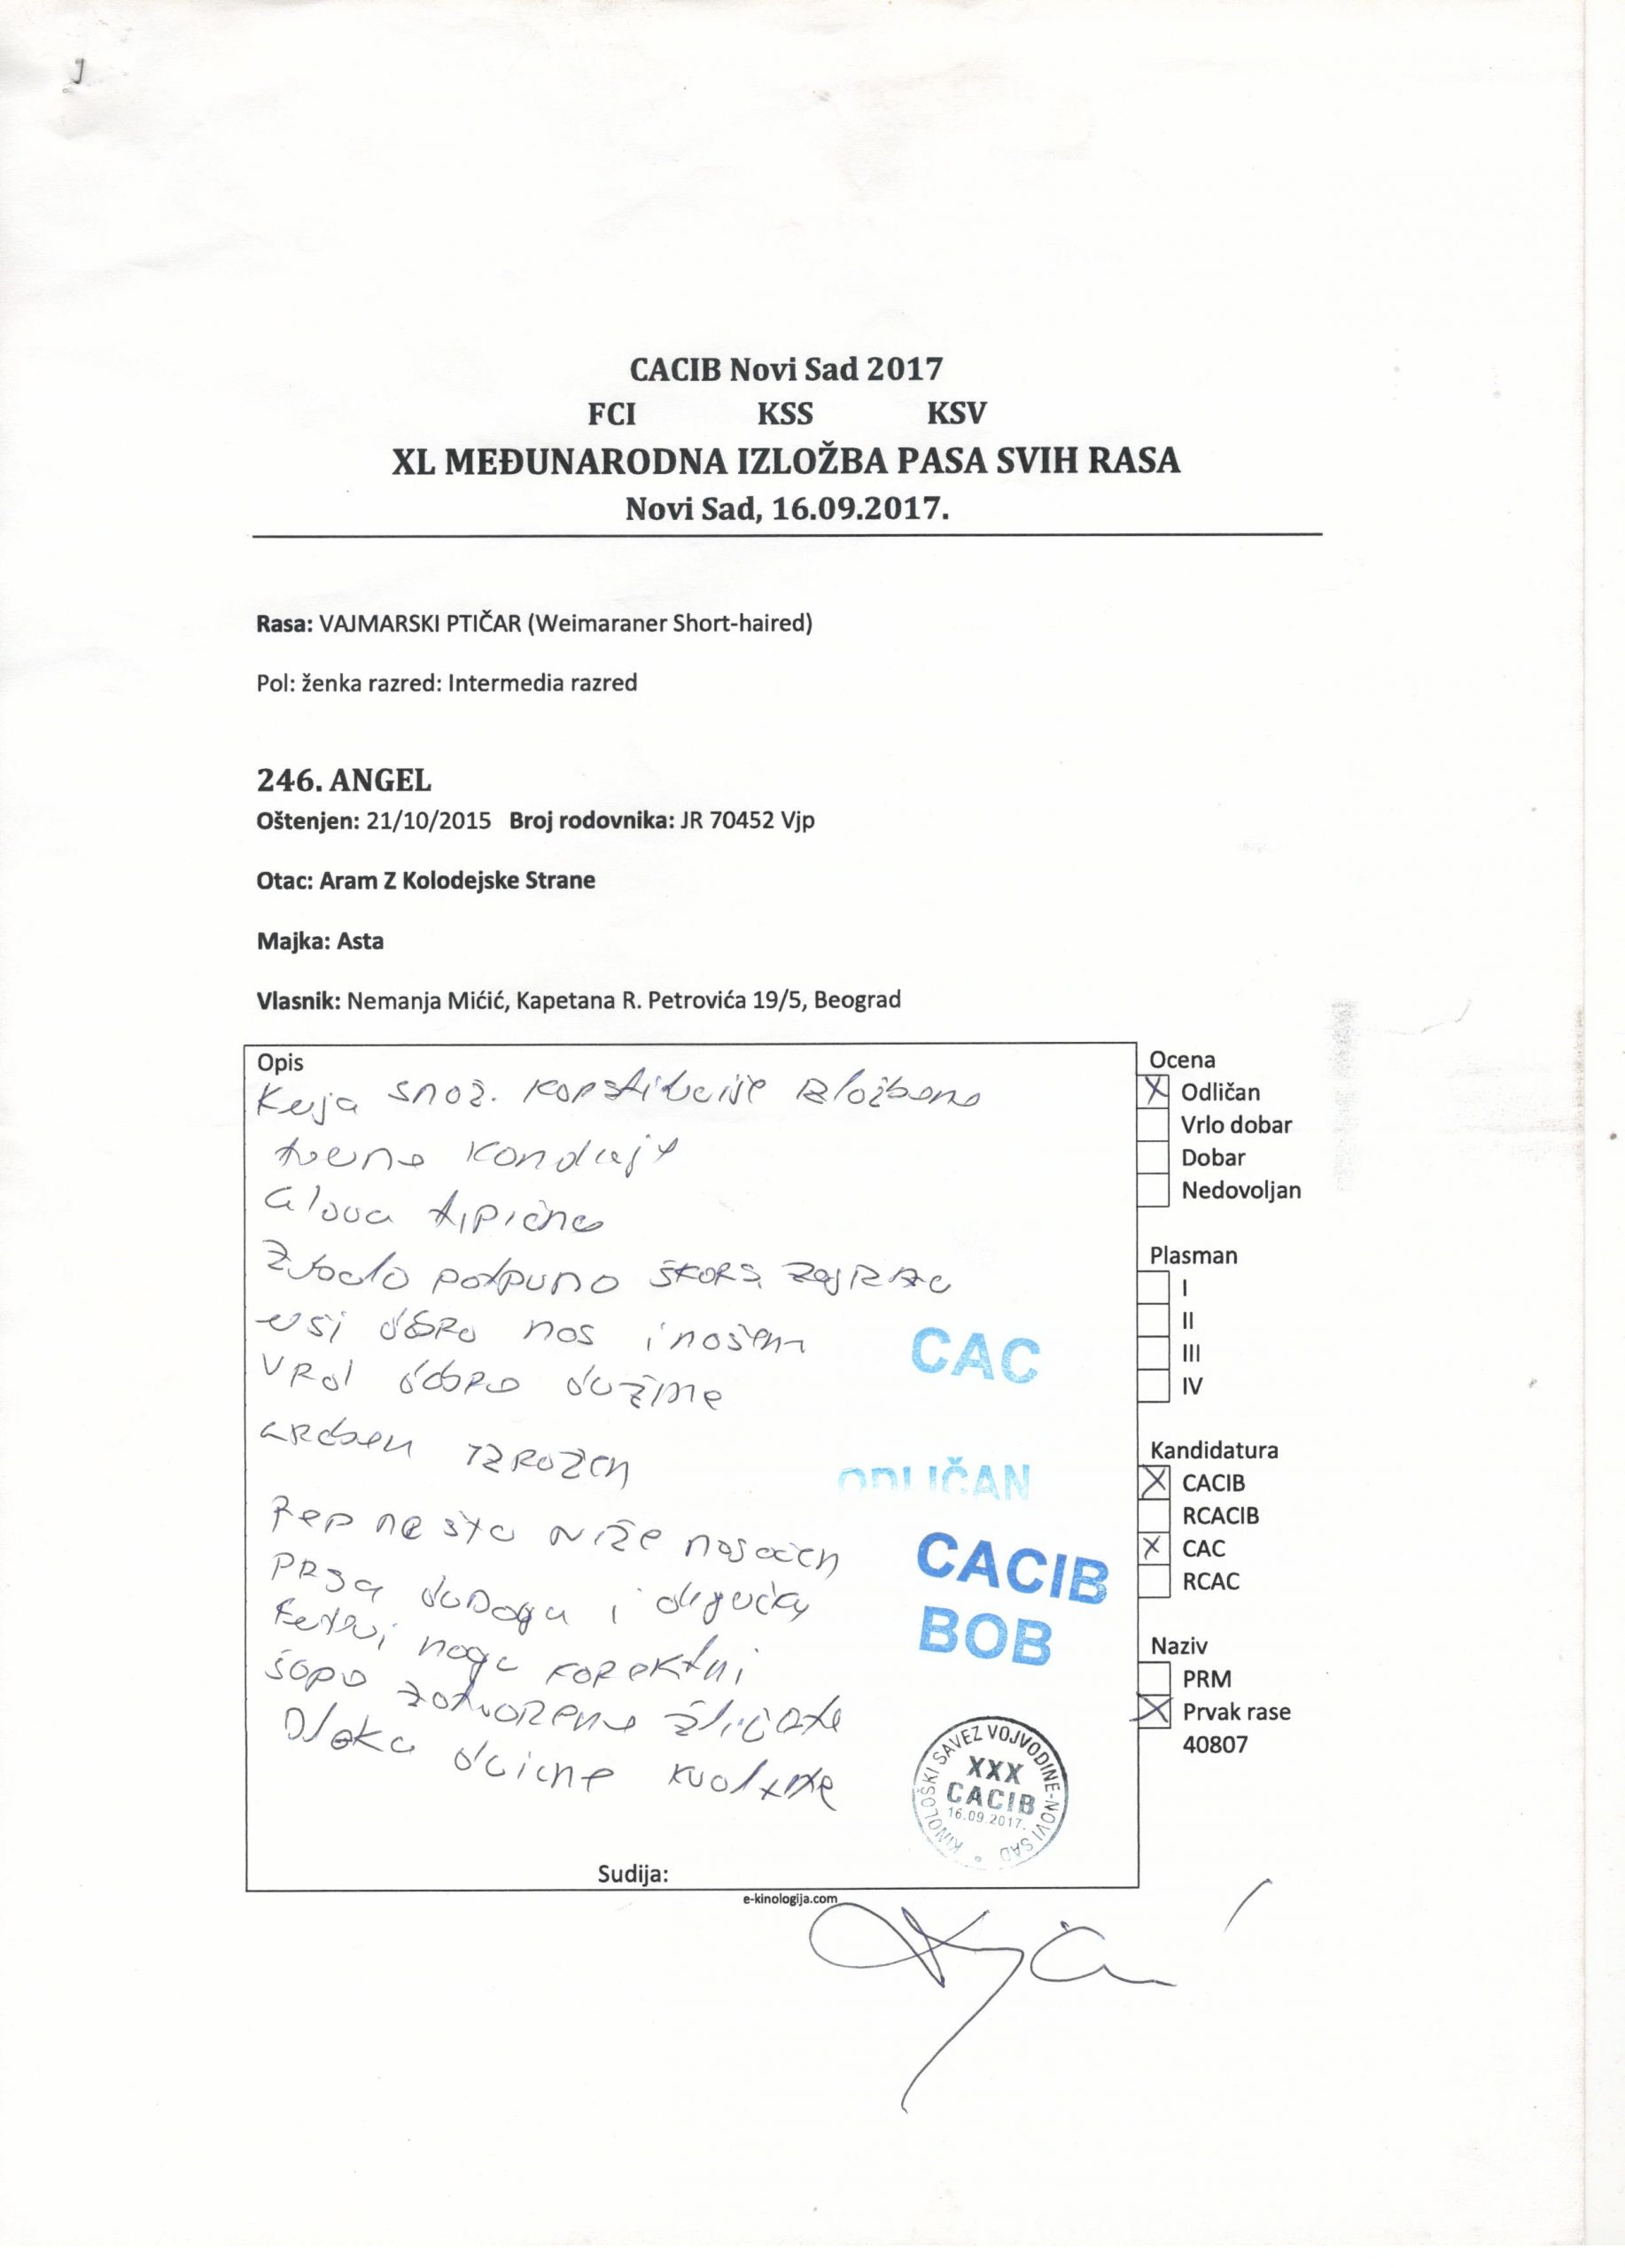 CACIB Novi Sad 2017
FCI KSS KSV
XL MEĐUNARODNA IZLOŽBA PASA SVIH RASA
Novi Sad, 16.09.2017.
Rasa: VAJMARSKI PTIČAR (Weimaraner Short-haired)
Pol: ženka razred: Intermedia razred
246. ANGEL
Oštenjen: 21/10/2015 Broj rodovnika: JR 70452 Vjp
Otac: Aram Z Kolodejske Strane
Majka: Asta
Vlasnik: Nemanja Mićić, Kapetana R. Petrovića 19/5, Beograd
Opis
Kuja snož. konstitucije izložbeno
Glava tipična
potpuno
uši dobro nos i nošen
dobro dužine
Greben izražen
Rep nešto niže nosečen
PRSA duboga i
noge korektni
šapo zatvorene
Dlaka
CAC
ODLIČAN
CACIB
BOB
KINOLOŠKI SAVEZ VOJVODINE-NOVI SAD
XXX
CACIB
16.09.2017.
Sudija:
e-kinologija.com
Ocena
X Odličan
Vrlo dobar
Dobar
Nedovoljan
Plasman
I
II
III
IV
Kandidatura
X CACIB
RCACIB
X CAC
RCAC
Naziv
PRM
X Prvak rase
40807